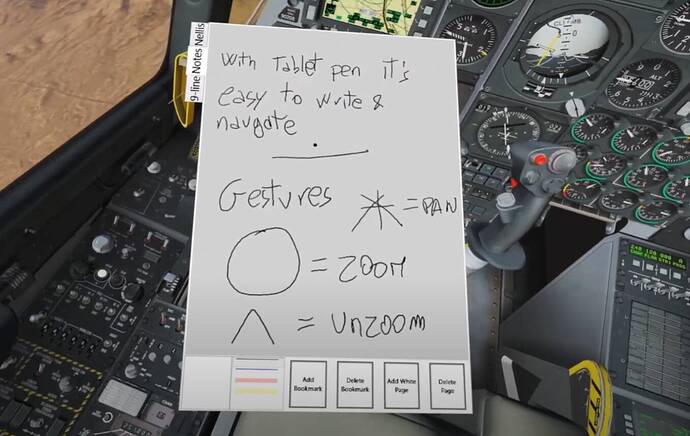 9-line Notes Nellis
With Tablet pen it's
easy to write &
navgate
Gestures
= PAN
= ZOOM
= UnZOOM
Add Bookmark
Delete Bookmark
Add White Page
Delete Page
CLIMB
ALT